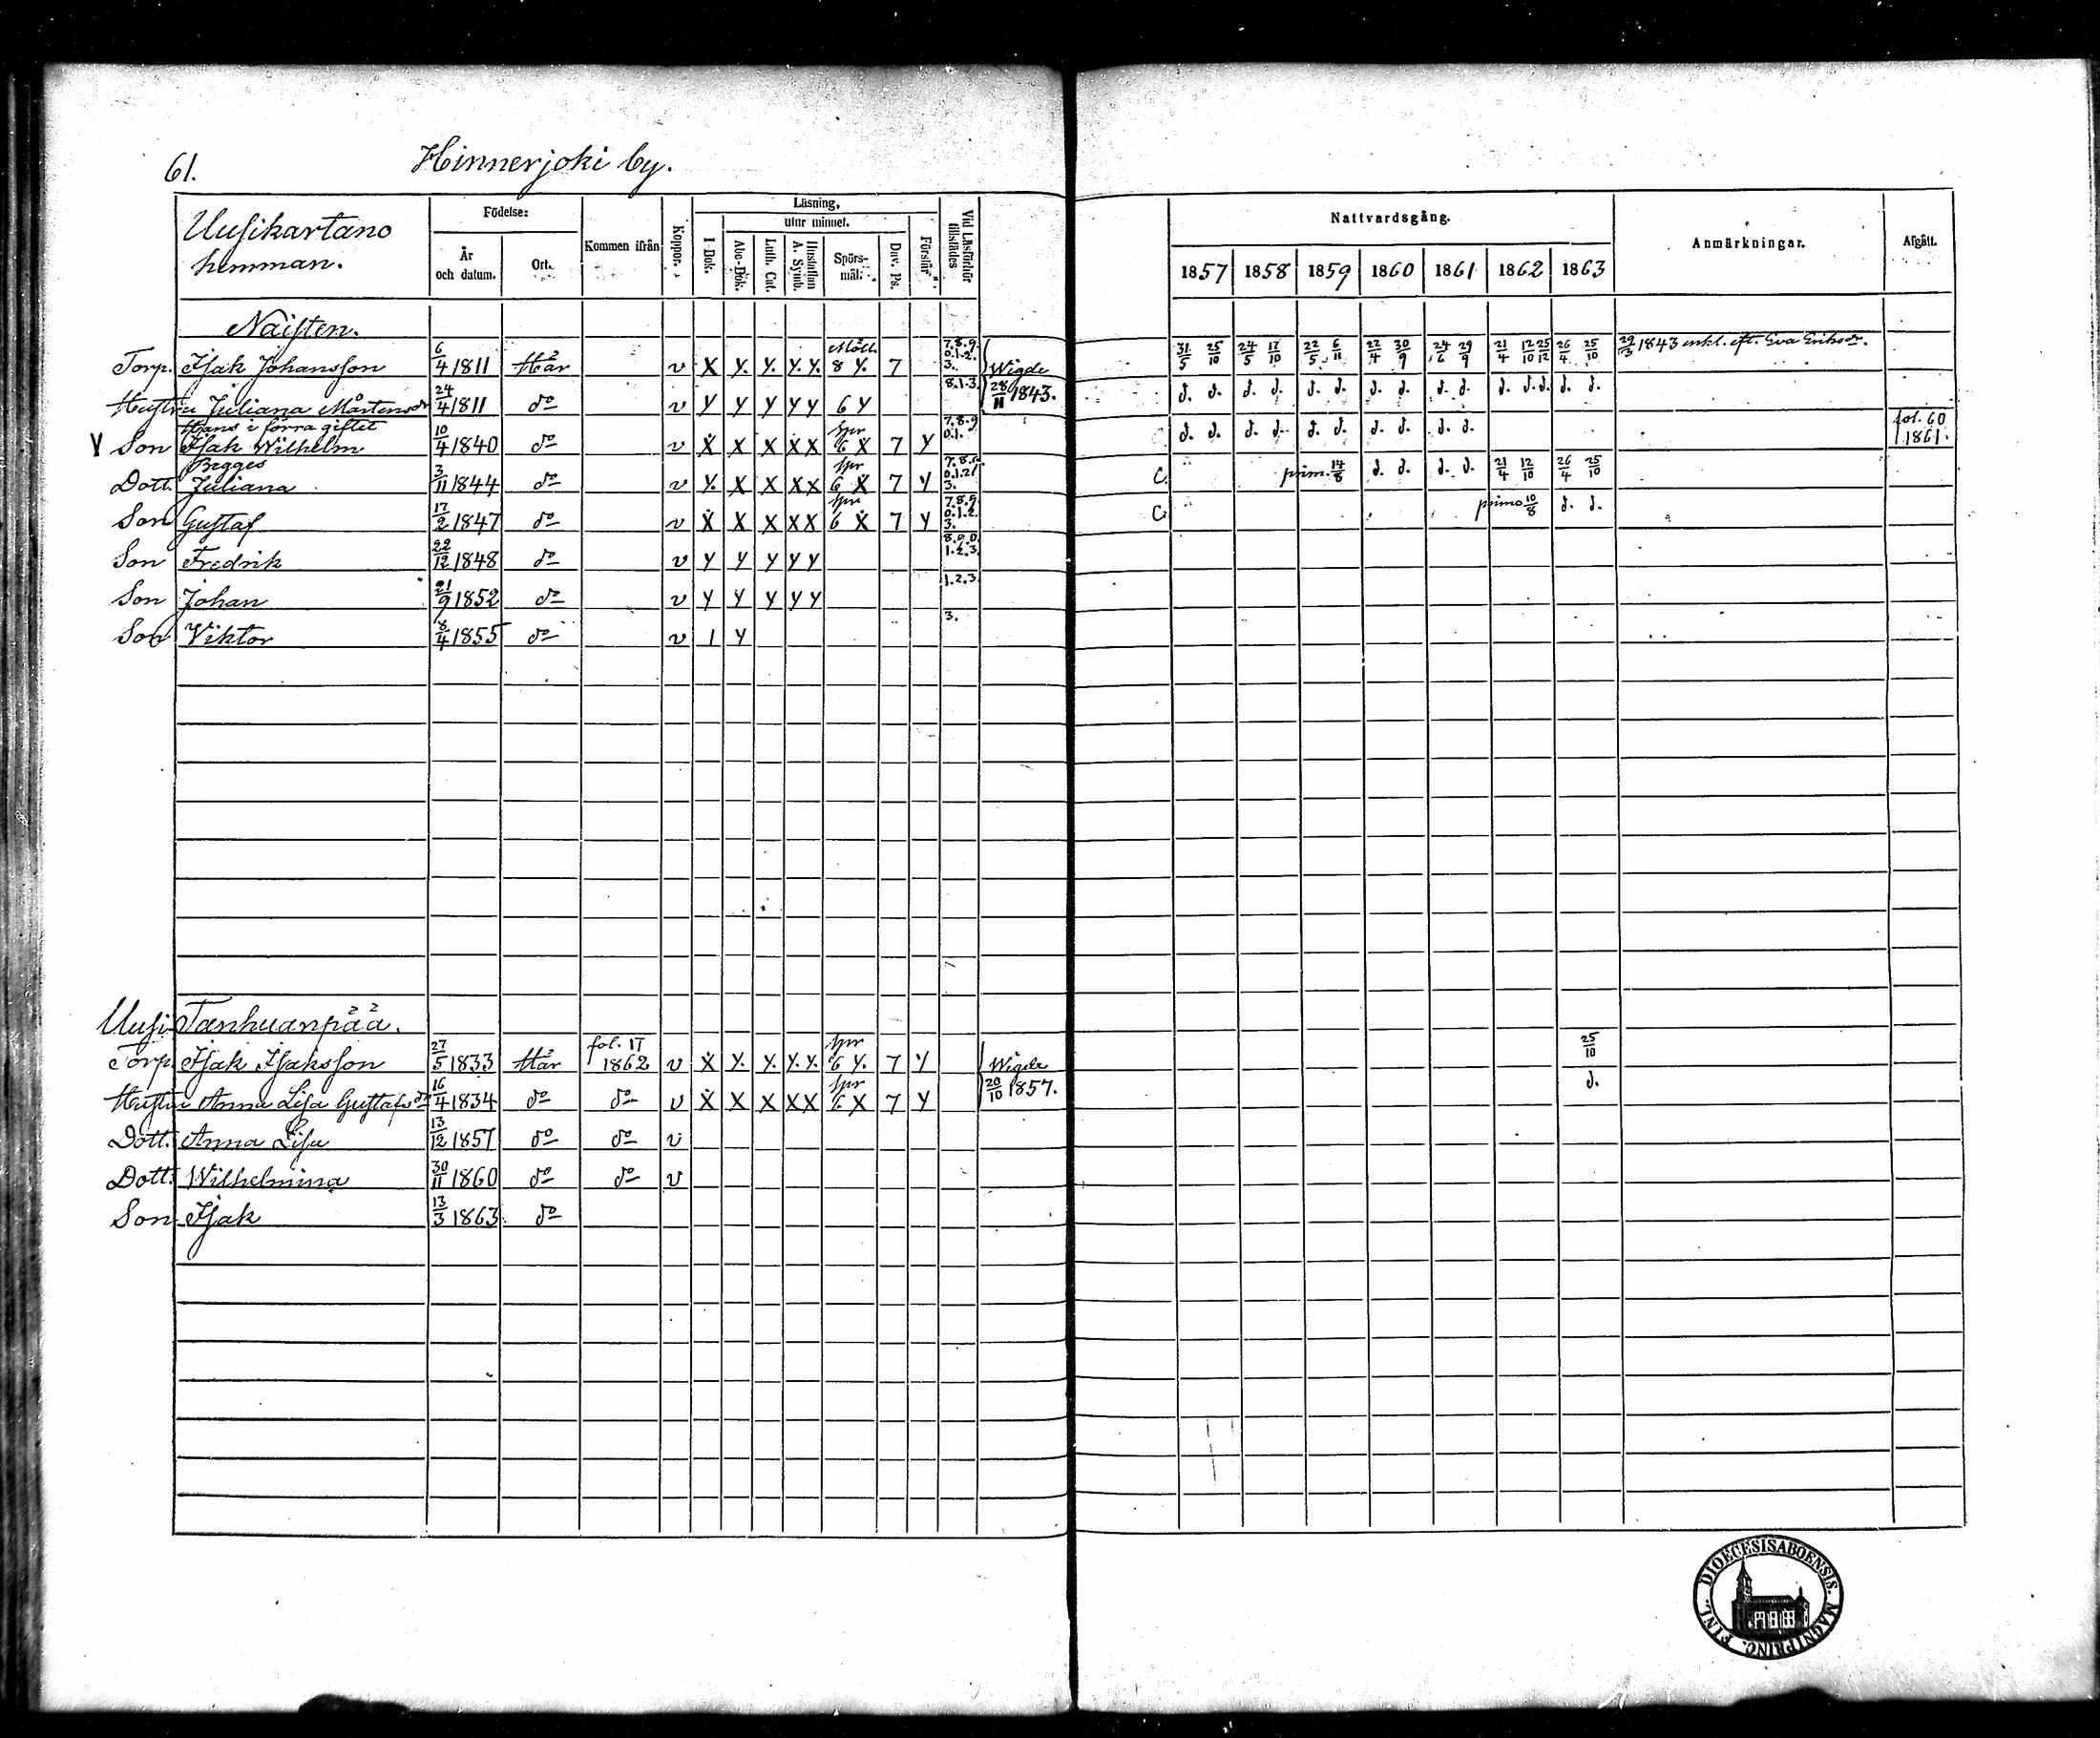 61. Hinnerjoki by.
Uusikartano hemman.
Födelse:
År och datum.
Ort.
Kommen ifrån
Koppor.
Läsning,
I Bok.
utur minnet.
Abc-Bok.
Luth. Cat.
Hustaflan A. Symb.
Spörs-mål.
Dav. Ps.
Förstår
Vid Läsförhör tillstädes
Nattvardsgång.
1857 1858 1859 1860 1861 1862 1863
Anmärkningar.
Afgått.
Naisten.
Torp. Isak Johansson 6/4 1811 Här v X Y. Y. Y. Y. 8 Y. 7 7.8.9. 0.1.2. 3. Wigde 31/5 25/10 24/5 17/10 22/5 6/11 22/4 30/9 24/6 29/9 21/4 12/10 25/12 26/4 25/10 29/3 1843 enkl. eft. Eva Eriksdr.
Hustru Juliana Mårtensdr 24/4 1811 do v Y Y Y Y Y 6 Y 8.1.3. 28/11 1843. d. d. d. d. d. d. d. d. d. d. d. d. d. d. d.
Hans i förra giftet
V Son Isak Wilhelm 10/4 1840 do v X X X X X Spr 6 X 7 Y 7.8.9 0.1. d. d. d. d. d. d. d. d. d. d. fol. 60 1861.
Begges
Dott. Juliana 3/11 1844 do v Y. X X X X Spr 6 X 7 Y 7.8. 0.1.2. 3. C. prim. 14/8 d. d. d. d. 21/4 12/10 26/4 25/10
Son Gustaf 17/2 1847 do v X X X X X Spr 6 X 7 Y 7.8.9. 0.1.2. 3. C. primo 10/8 d. d.
Son Fredrik 22/12 1848 do v Y Y Y Y Y 8.9.0. 1.2.3.
Son Johan 21/9 1852 do v Y Y Y Y Y 1.2.3.
Son Viktor 8/4 1855 do v 1 Y 3.
Uusi-Tanhuanpää.
Torp. Isak Isaksson 27/5 1833 Här fol. 17 1862 v X Y. Y. Y. Y. Spr 6 Y. 7 Y Wigde 25/10
Hustru Anna Lisa Gustafsdr 16/4 1834 do do v X X X X X Spr 6. X 7 Y 20/10 1857. d.
Dott. Anna Lisa 13/12 1857 do do v
Dott. Wilhelmina 30/11 1860 do do v
Son Isak 13/3 1863. do
DIOECESIS ABOENSIS. MAGNI PRINC. FINL.